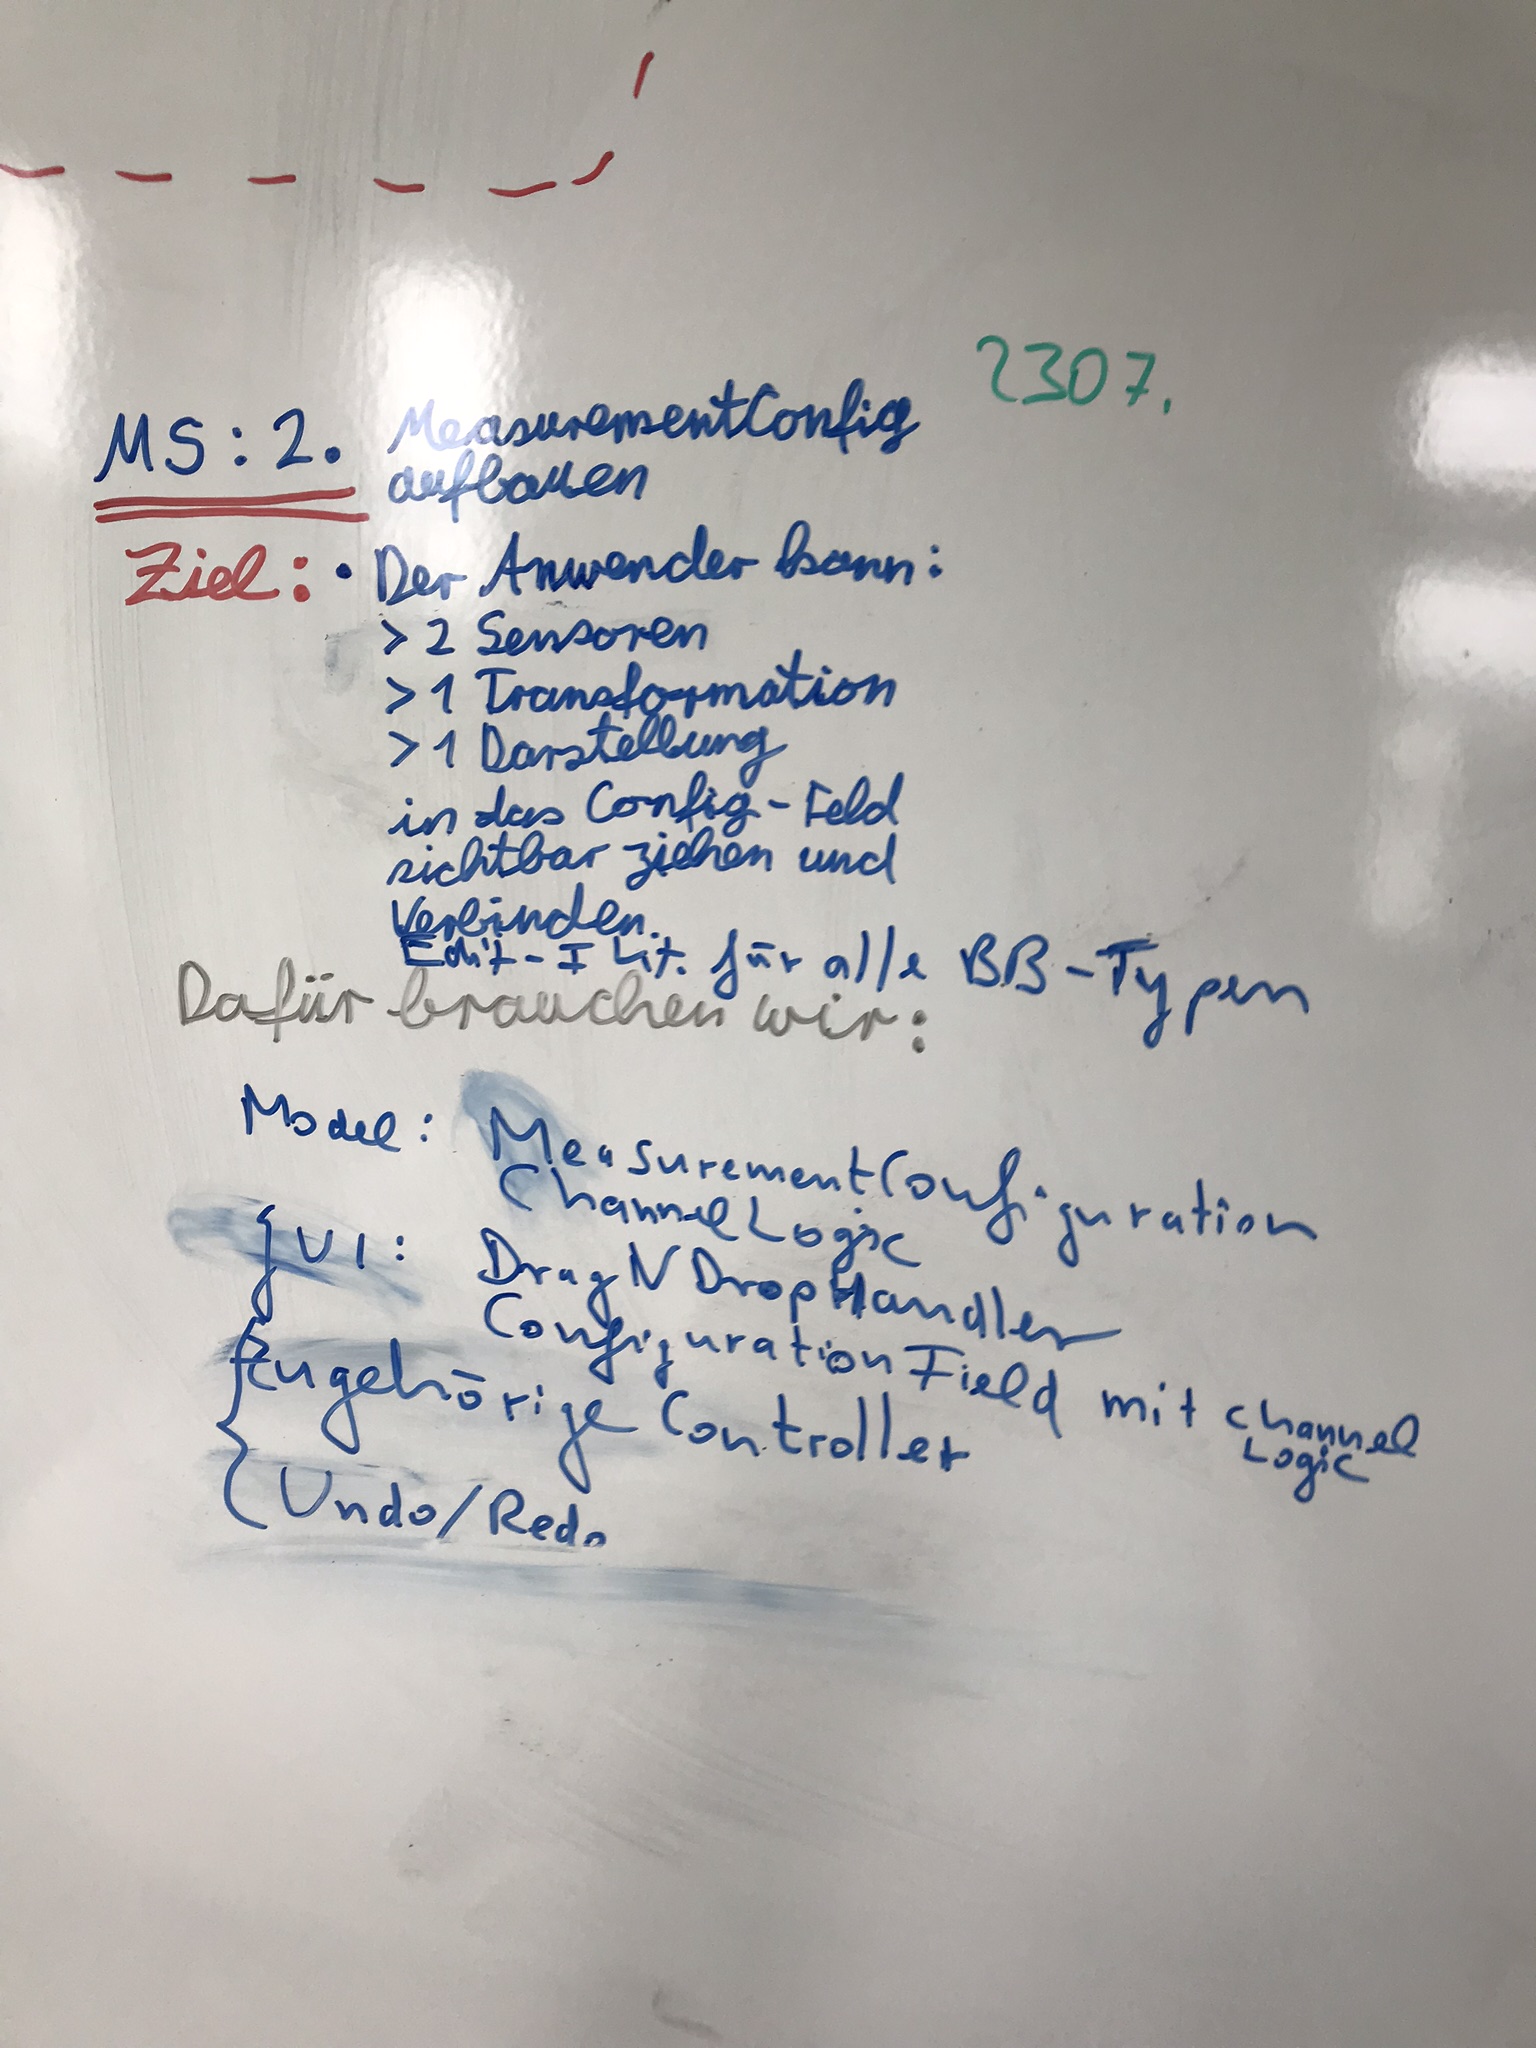 2307.
MS: 2. MeasurementConfig
aufbauen
Ziel: • Der Anwender kann:
> 2 Sensoren
> 1 Transformation
> 1 Darstellung
in das Config-Feld
sichtbar ziehen und
Verbinden.
Edit- für alle BB-Typen
Dafür brauchen wir:
Model: MeasurementConfiguration
ChannelLogic
GUI: DragNDropHandler
ConfigurationField mit channel
Logic
Zugehörige Controller
Undo/Redo